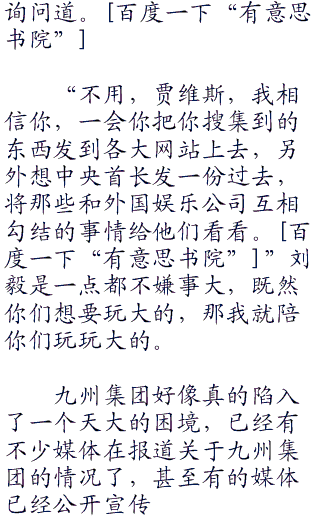 询问道。[百度一下“有意思
书院”]
“不用，贾维斯，我相
信你，一会你把你搜集到的
东西发到各大网站上去，另
外想中央首长发一份过去，
将那些和外国娱乐公司互相
勾结的事情给他们看看。[百
度一下“有意思书院”]”刘
毅是一点都不嫌事大，既然
你们想要玩大的，那我就陪
你们玩玩大的。
九州集团好像真的陷入
了一个天大的困境，已经有
不少媒体在报道关于九州集
团的情况了，甚至有的媒体
已经公开宣传